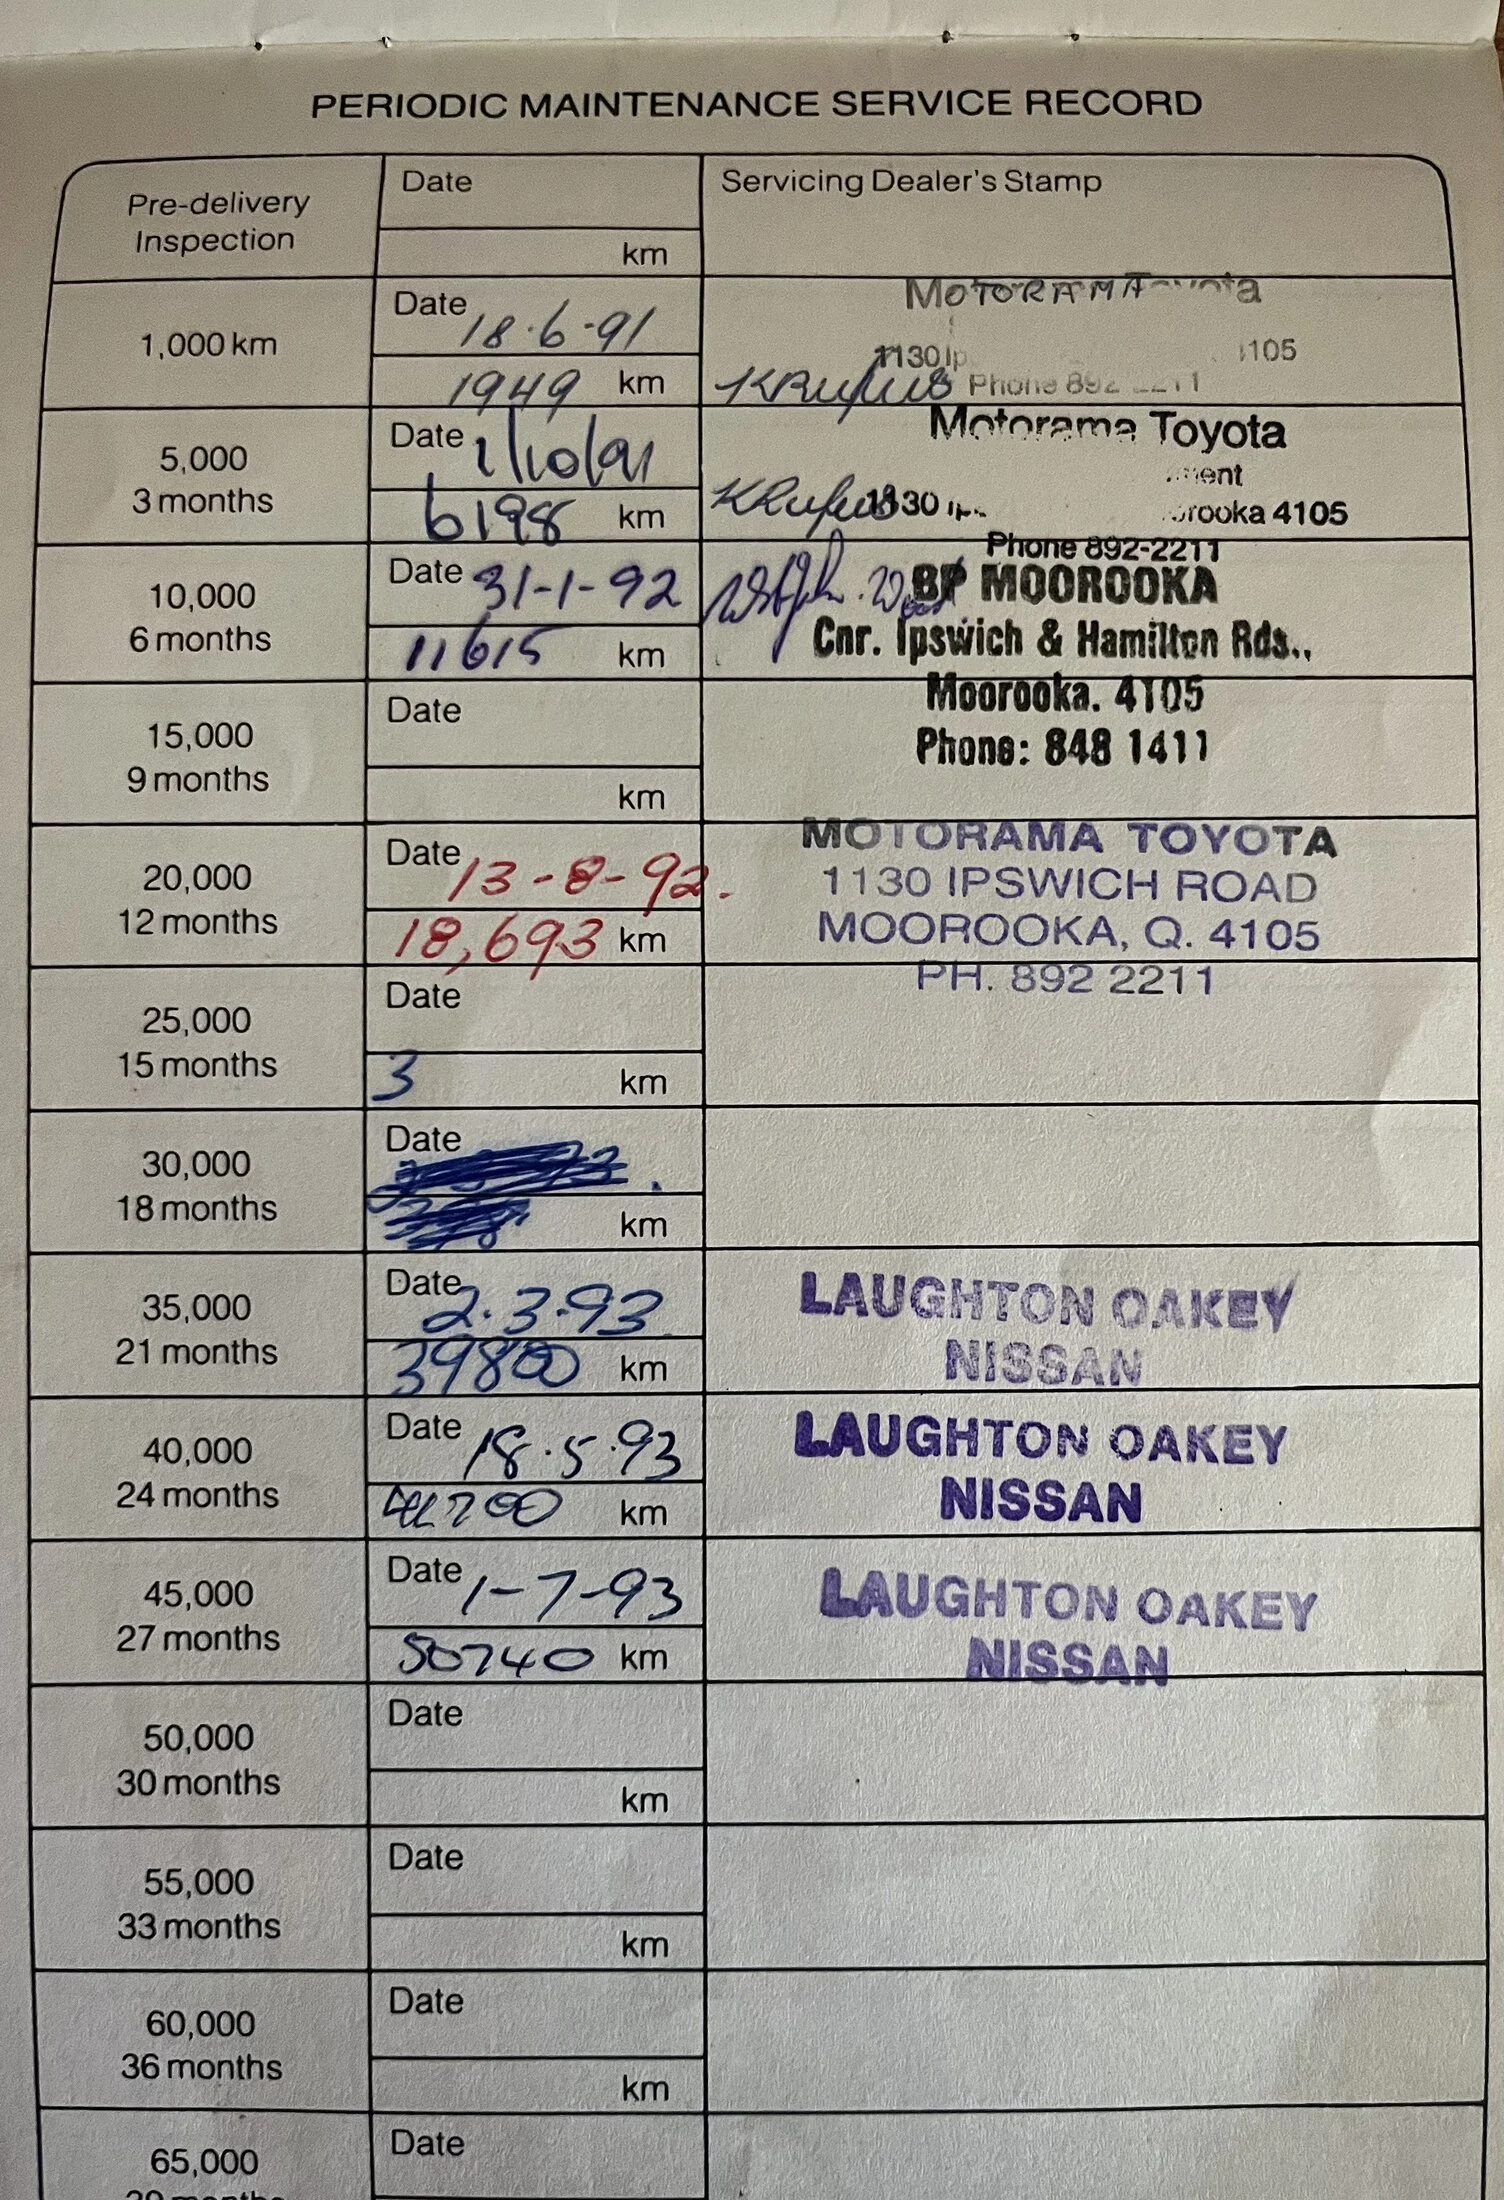 PERIODIC MAINTENANCE SERVICE RECORD
Pre-delivery
Inspection
Date
km
Servicing Dealer's Stamp
1,000 km
Date 18·6·91
1949 km
MOTORAMA Toyota
1130 4105
KRufus Phone 892 2211
5,000
3 months
Date 1/10/91
6198 km
Motorama Toyota
KRufus 1130
Moorooka 4105
Phone 892-2211
10,000
6 months
Date 31-1-92
11615 km
BP MOOROOKA
Cnr. Ipswich & Hamilton Rds.,
Moorooka. 4105
Phone: 848 1411
15,000
9 months
Date
km
20,000
12 months
Date 13-8-92.
18,693 km
MOTORAMA TOYOTA
1130 IPSWICH ROAD
MOOROOKA, Q. 4105
PH. 892 2211
25,000
15 months
Date
3 km
30,000
18 months
Date
km
35,000
21 months
Date 2.3.93
39800 km
LAUGHTON OAKEY
NISSAN
40,000
24 months
Date 18.5.93
km
LAUGHTON OAKEY
NISSAN
45,000
27 months
Date 1-7-93
50740 km
LAUGHTON OAKEY
NISSAN
50,000
30 months
Date
km
55,000
33 months
Date
km
60,000
36 months
Date
km
65,000
Date